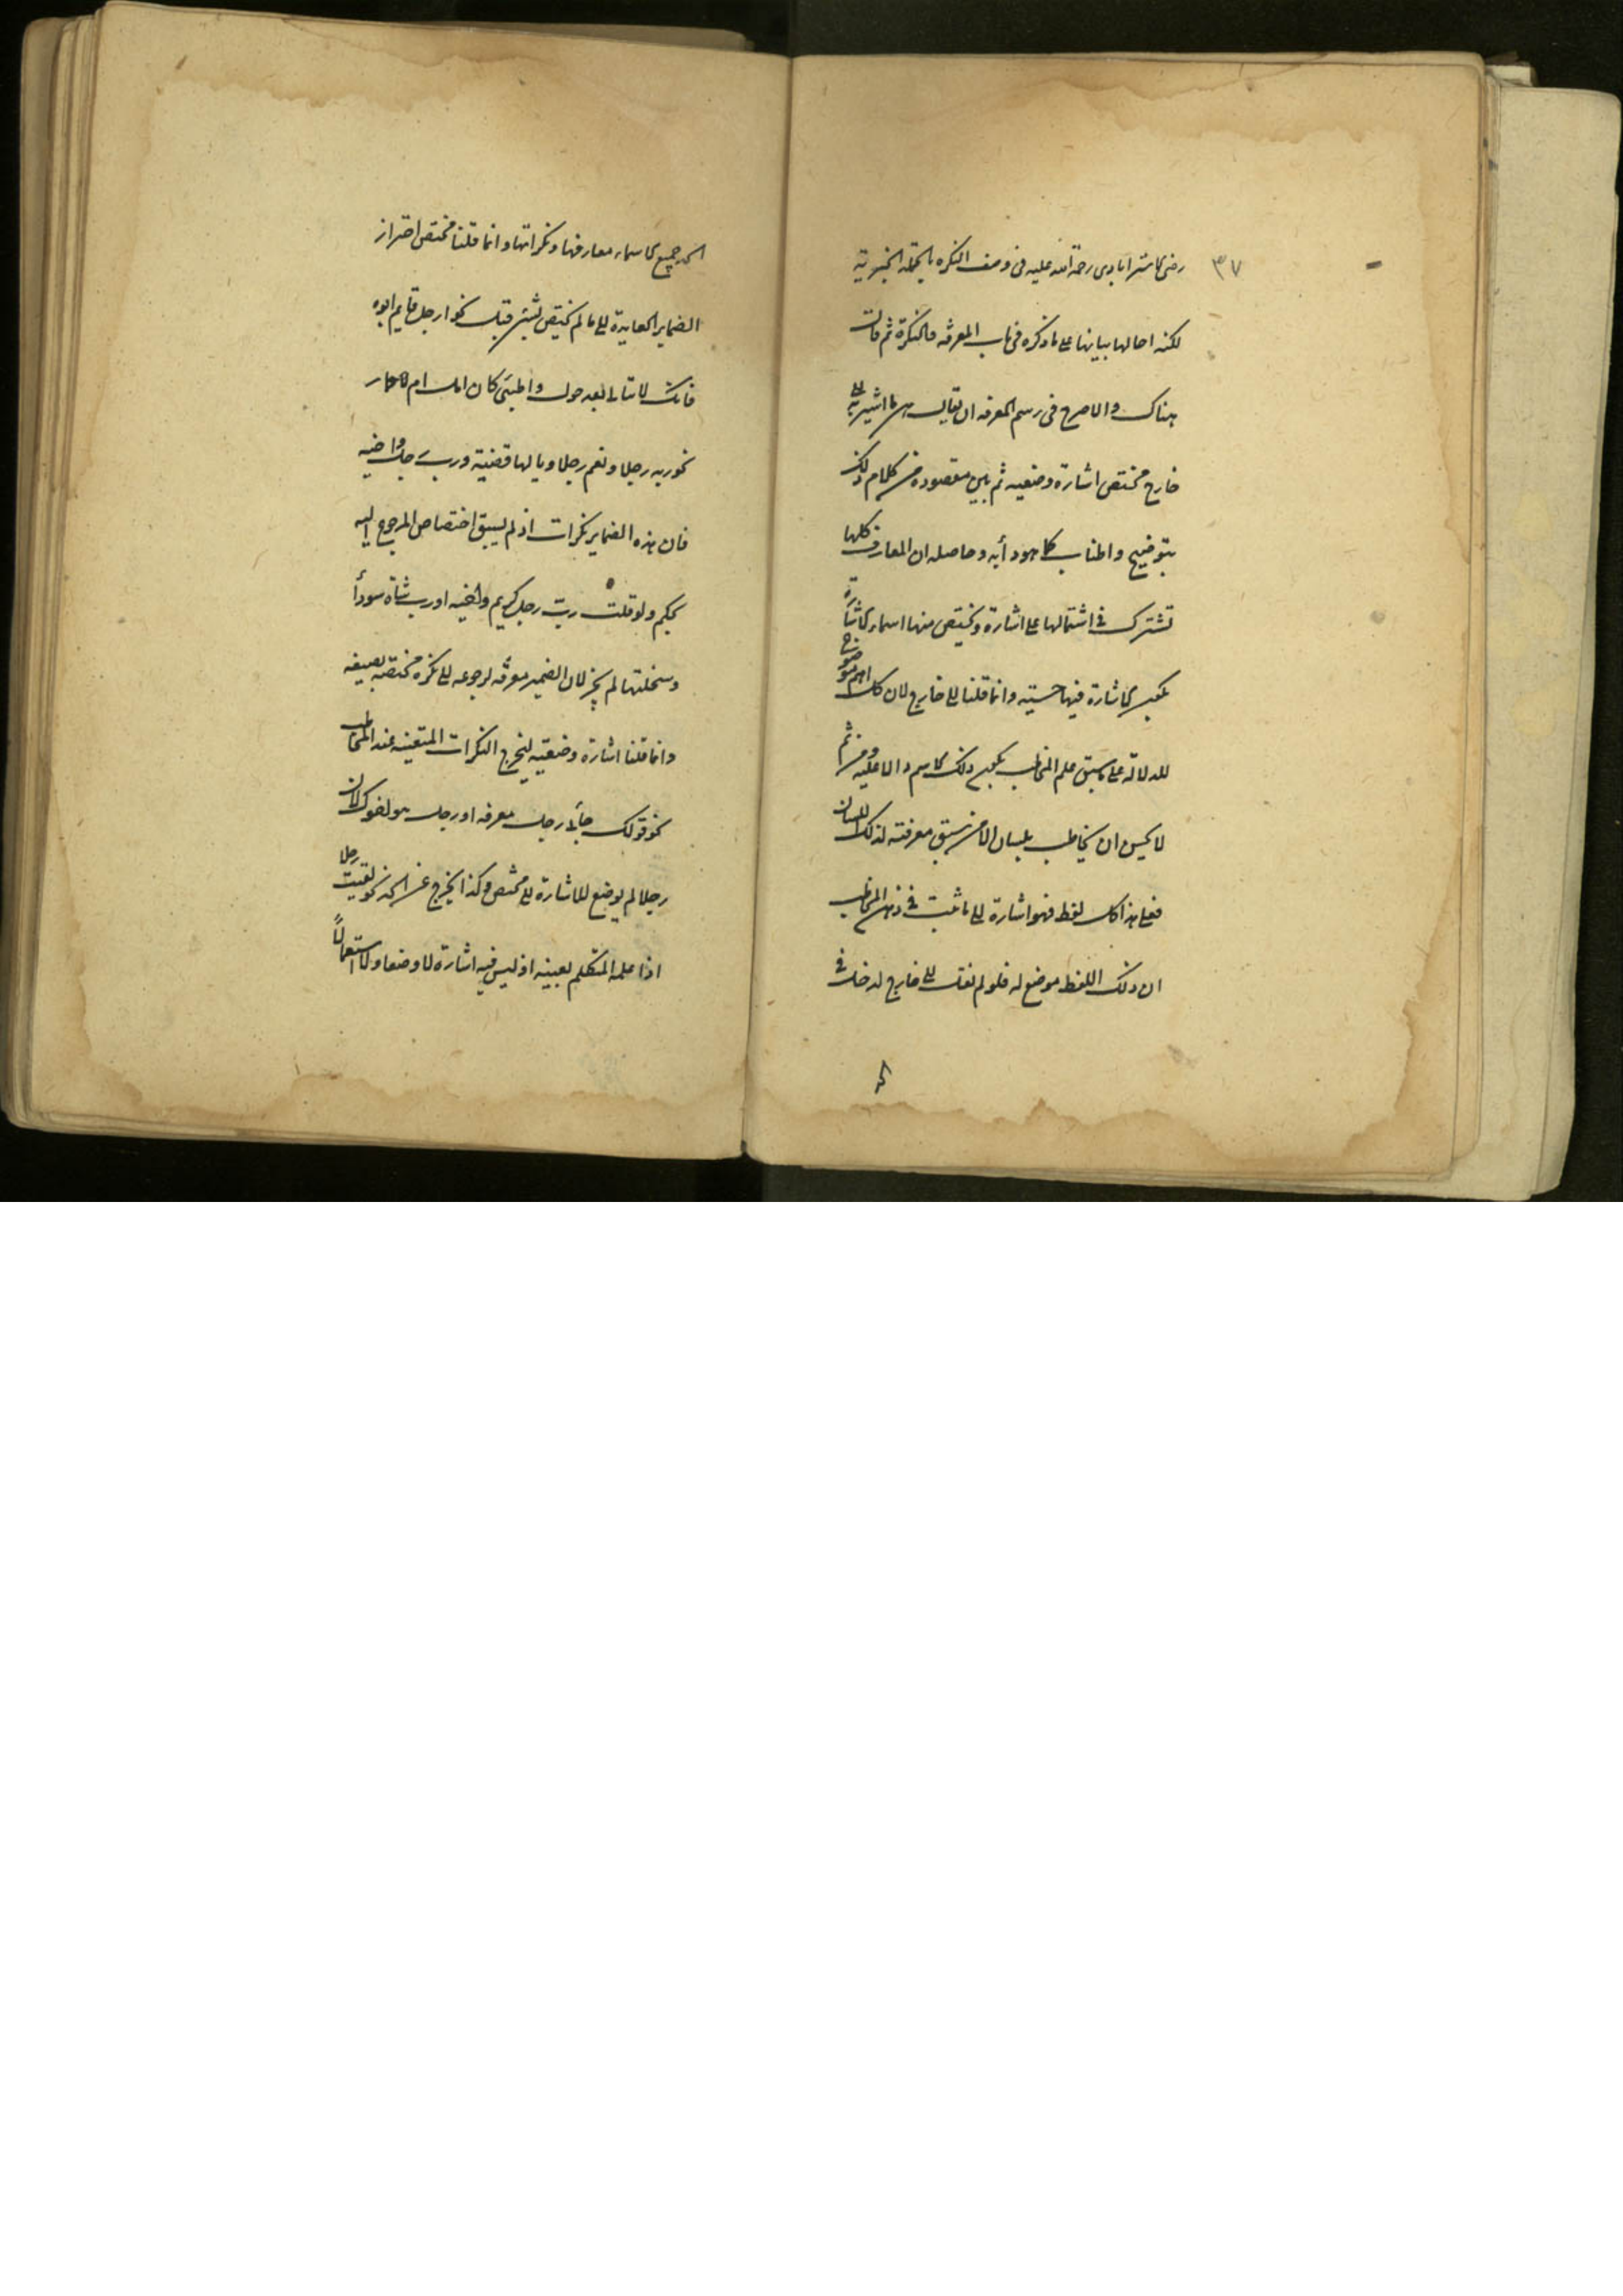 ٣٧
رضى الاسترابادى رحمة الله عليه فى وصف النكره بالجملة الخبرية
لكنه احالها بيانها على ما ذكره فى باب المعرفة والنكرة ثم قال
هناك والاصرح فى رسم المعرفه ان يقال هى ما اشير به الى
خارج مختص اشارة وضعيه ثم بين مقصوده من كلام ذلك
بتوضيح واطناب كما هو دأبه وحاصله ان المعارف كلها
تشترك فى اشتمالها على اشارة وتختص منها اسماء الاشارة
بكون الاشارة فيها حسية وانما قلنا الى خارج لان كل اسم موضوع
للدلالة على ما سبق علم المخاطب بكون ذلك الاسم دالا عليه ومن ثم
لا يحسن ان يخاطب بلسان الا من سبق معرفته لذلك اللسان
فعلى هذا كل لفظ فهو اشارة الى ما ثبت فى ذهن المخاطب
ان ذلك اللفظ موضع له فلو لم نقل الى خارج لدخل فى
الحد جميع الاسماء معارفها ونكراتها وانما قلنا مختص احتراز
الضماير العايدة الى ما لم يختص بشئ قبل نحو ارجل قايم ابوه
فانك لا تبالى بعد حول اظبى كان امك ام حمار
نحو ربه رجلا ونعم رجلا ويا لها قضية ورب رجل واخيه
فان هذه الضماير نكرات اذ لم يسبق اختصاص المرجوع اليه
بحكم ولو قلت رب رجل كريم واخيه او رب شاة سودأ
وسخلتها لم يجز لان الضمير معرفه لرجوعه الى نكره مختصه بصفه
وانما قلنا اشارة وضعية ليخرج النكرات المتعينه عند المخاطب
نحو قولك جأنى رجل معرفه او رجل هو اخوك لان
رجلا لم يوضع للاشارة الى مختص وكذا يخرج عن الحد نحو لقيت رجلا
اذا علمه المتكلم بعينه اذ ليس فيه اشارة لا وضعا ولا استعمالا